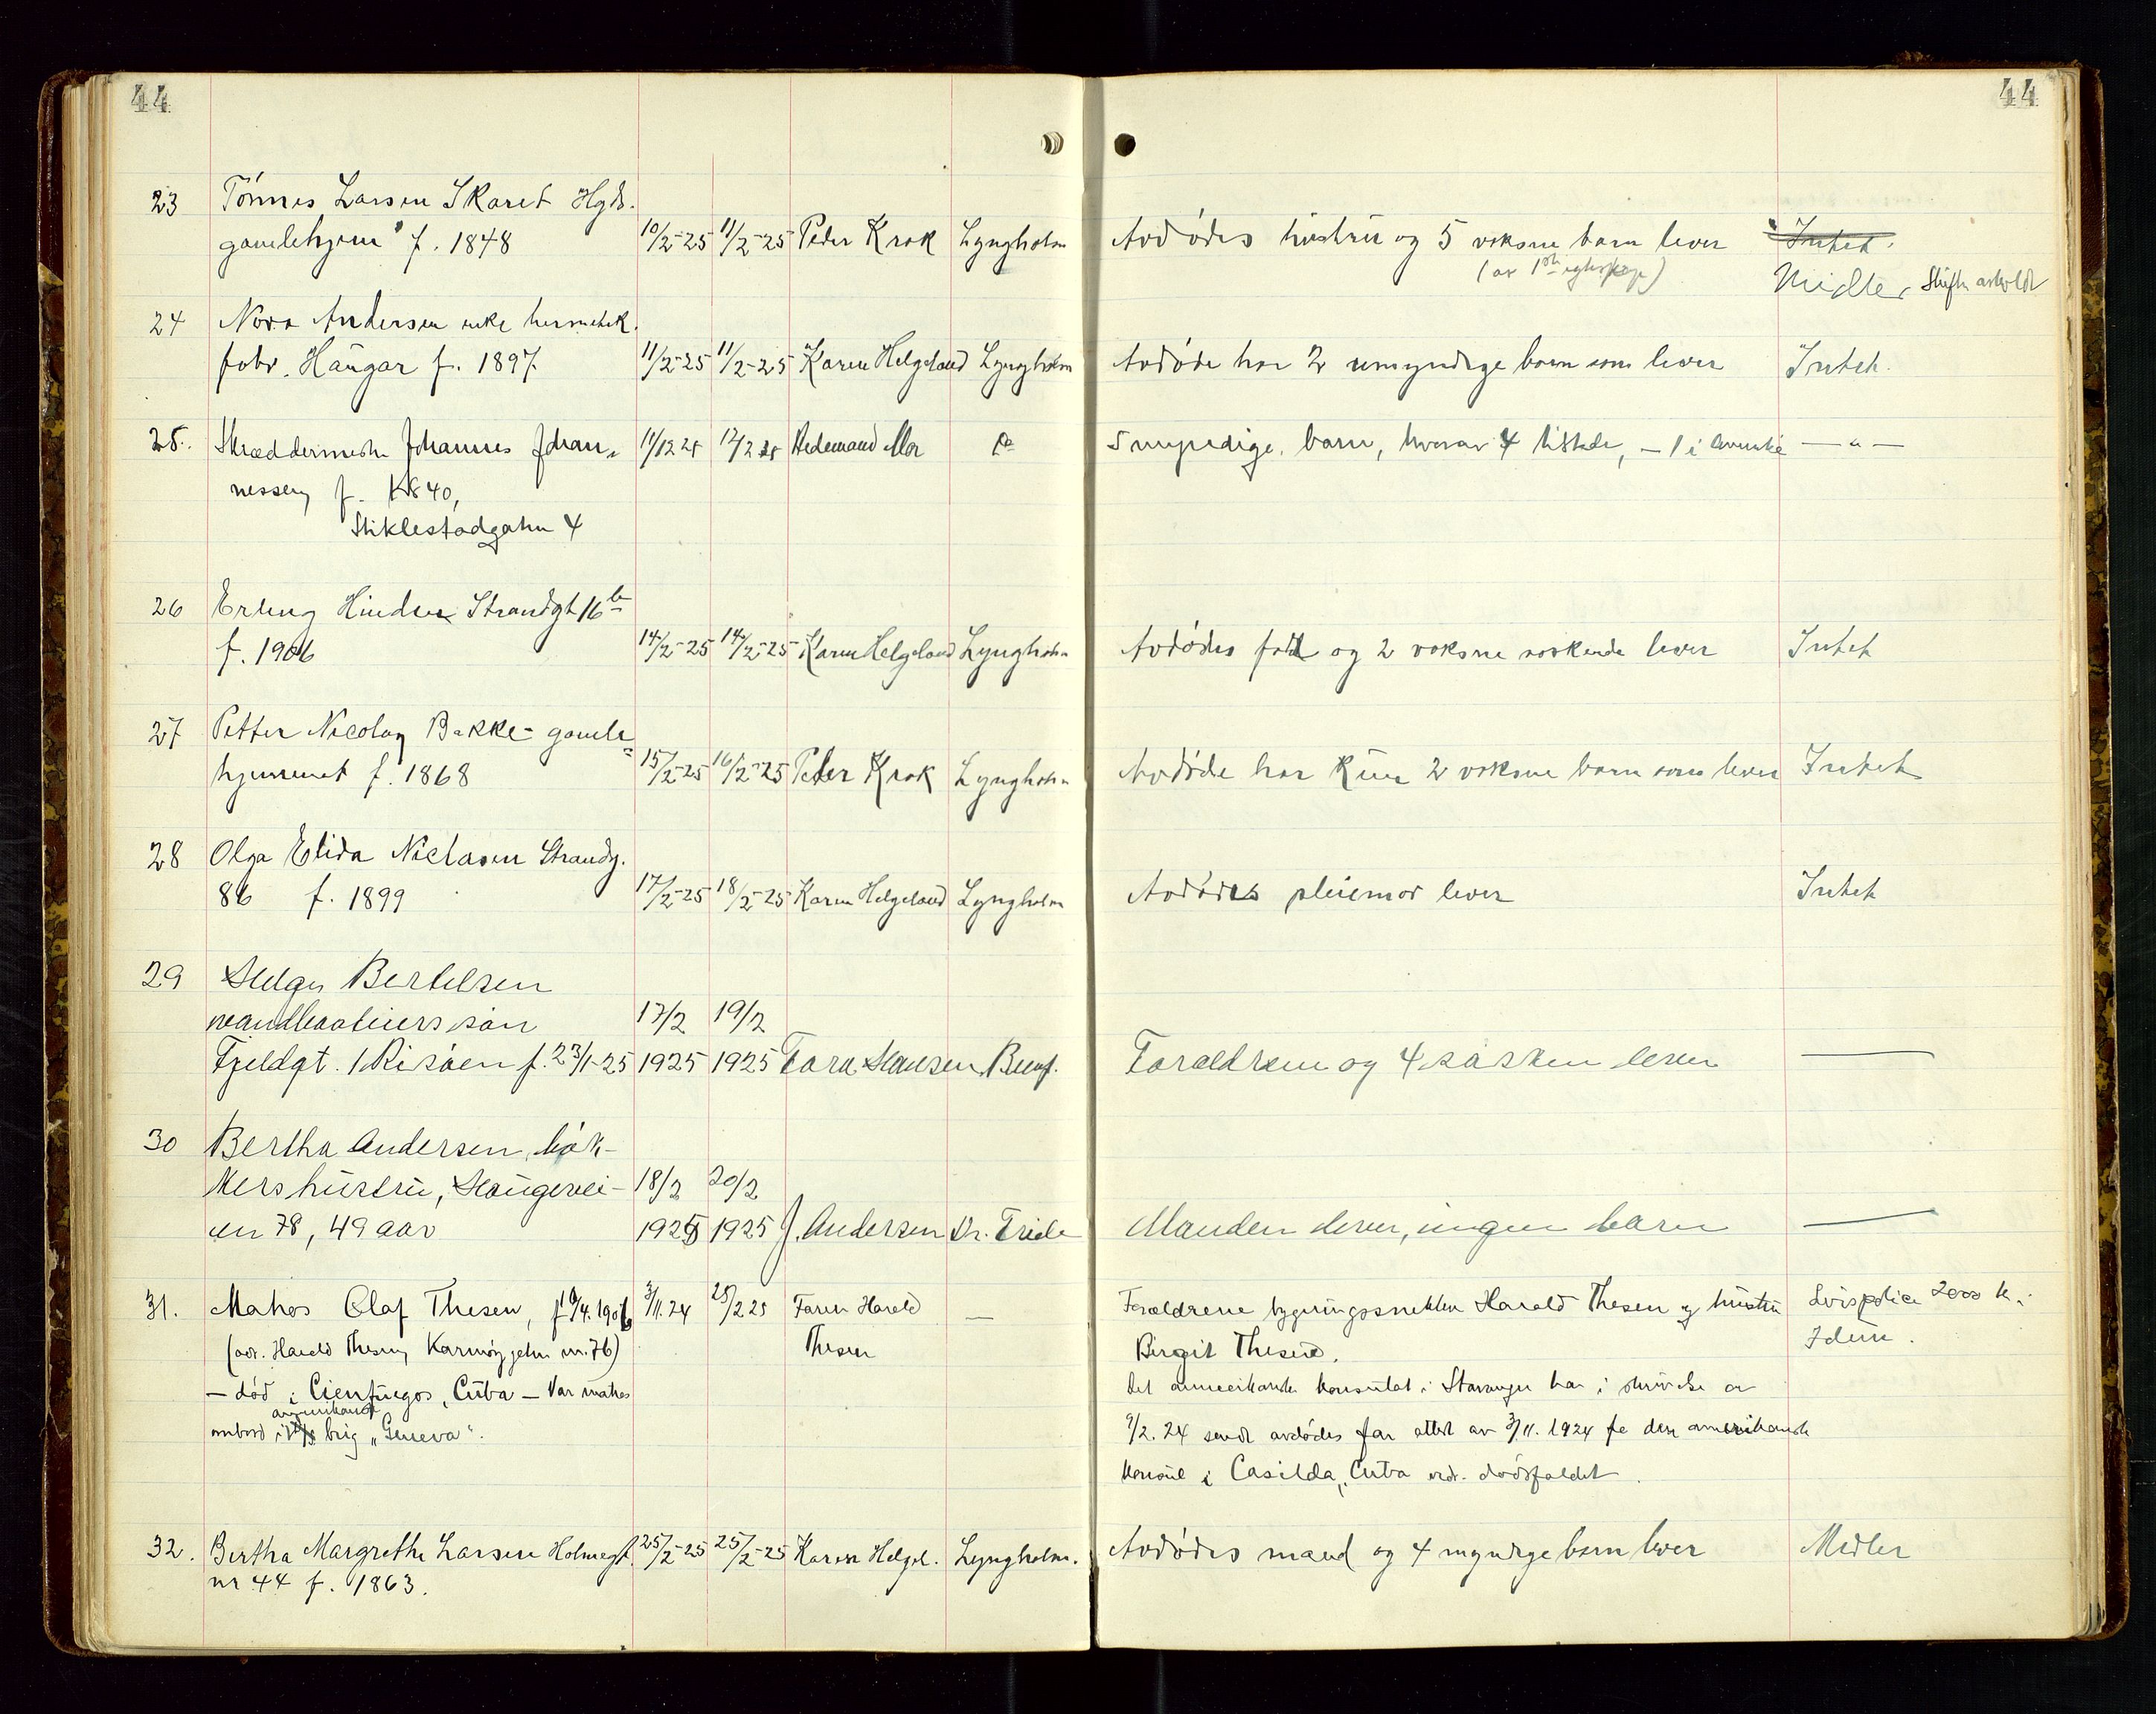 44
44
23 Tönnes Larsen Skaret Hgds.
gamlehjem f. 1848 10/2-25 11/2-25 Peder Krok Lyngholm Avdödes hustru og 5 voksne barn lever Intet.
(av 1st egteskap) Midler, Skifte avholdt
24 Nora Andersen enke hermetik.
fabr. Haugar f. 1897. 11/2-25 11/2-25 Karen Helgeland Lyngholm Avdöde har 2 umyndige barn som lever Intet.
25. Skræddermester Johannes Johan- 11/12 25 12/2 25 Hedemand do 5 myndige barn, hvorav 4 tilstede, - 1 i Amerika — " —
nessen f. 1840,
Stiklestadgaten 4
26 Erling Hinder Strandgt 16 b
f. 1906 14/2-25 14/2-25 Karen Helgeland Lyngholm Avdödes far og 2 voksne søskende lever Intet
27 Petter Nicolay Bakke - gamle
hjemmet f. 1868 15/2-25 16/2-25 Peder Krok Lyngholm Avdöde har kun 2 voksne barn som lever Intet
28 Olga Elida Nielsen Strandg.
86 f. 1899 17/2-25 18/2-25 Karen Helgeland Lyngholm Avdödes pleiemor lever Intet
29 Helga Bertelsen
vandbaatiers sön 17/2 19/2
Fjeldgt. 1 Risöen f. 23/1-25 1925 1925 Tora Hansen Forældrene og 4 søsken lever —
30 Bertha Andersen, bök-
kers hustru, Haugevei- 18/2 20/2
en 78, 49 aar 1925 1925 J. Andersen Manden lever, ingen barn —
31. Matros Olaf Thesen, f 19/4.1906 3/11.24 25/2 25 Faren Harald — Forældrene bygningssnekker Harald Thesen og hustru Livspolice 2000 kr.
(adr. Harald Thesen, Karmöygaten nr. 76) Thesen Birgit Thesen. Idun.
— död i Cienfuegos, Cuba — Var matros det amerikanske konsulat i Stavanger har i skrivelse av
amerikansk
ombord i brig „Geneva". 9/2. 24 sendt avdödes far attest av 3/11. 1924 fra den amerikanske
konsul i Casilda, Cuba vedr. dödsfaldet.
32. Bertha Margrethe Larsen Holmegt. 25/2-25 25/2-25 Karen Helgel. Lyngholm. Avdödes mand og 4 myndige barn lever Midler
nr 44 f. 1863.